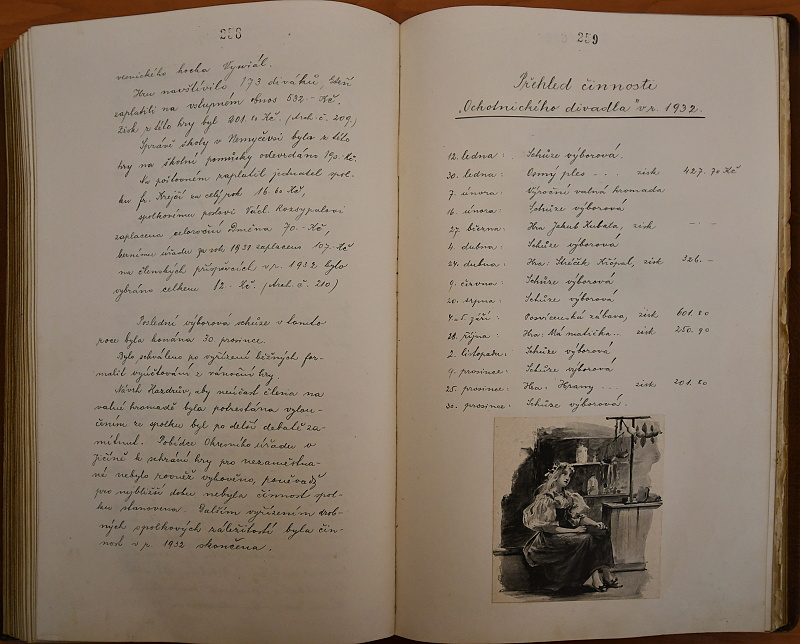 258
vesnického hocha Vyvial.
Hru navštívilo 173 diváků, kteří
zaplatili na vstupném obnos 532 – Kč.
Zisk z této hry byl 201.80 Kč. (Arch. č. 209.)
Správě školy v Nemyčevsi bylo z této
hry na školní pomůcky odevzdáno 190 Kč.
Na poštovném zaplatil jednatel spol-
ku fr. Krejčí za celý rok 16.60 Kč,
spolkovému poslovi Václ. Rozsypalovi
zaplacena celoroční 70.– Kč,
bernímu úřadu za rok 1931 zaplaceno 107.– Kč
na členských příspěvcích v r. 1932 bylo
vybráno celkem 12.– Kč. (Arch. č. 210.)
Poslední výborová schůze v tomto
roce byla konána 30 prosince.
Bylo schváleno po vyřízení běžných for-
malit vyúčtování z vánoční hry.
Návrh Hazdrův, aby neúčast člena na
valné hromadě byla potrestána vylou-
čením ze spolku byl po delší debatě za-
mítnut. Pobídce Okresního úřadu v
Jičíně k sehrání hry pro nezaměstna-
né nebylo rovněž vyhověno, poněvadž
pro nejbližší dobu nebyla činnost spol-
ku stanovena. Dalším vyřízením drob-
ných spolkových záležitostí byla čin-
nost v r. 1932 skončena.
259
Přehled činnosti
„Ochotnického divadla" v r. 1932.
12. ledna: Schůze výborová.
30. ledna: Osmý ples ... zisk 427.70 Kč
7. února: Výroční valná hromada
16. února: Schůze výborová
27. března: Hra Jakub Kubala, zisk – . –
4. dubna: Schůze výborová
24. dubna: Hra: Strěček Křópal, zisk 326. –
9. června: Schůze výborová
20. srpna: Schůze výborová
4.-5. září: Posvícenská zábava, zisk 601.80
28. října: Hra: Má matička.. zisk 250.90
2. listopadu: Schůze výborová
9. prosince: Schůze výborová
25. prosince: Hra: Hrany ... zisk 201.80
30. prosince: Schůze výborová.